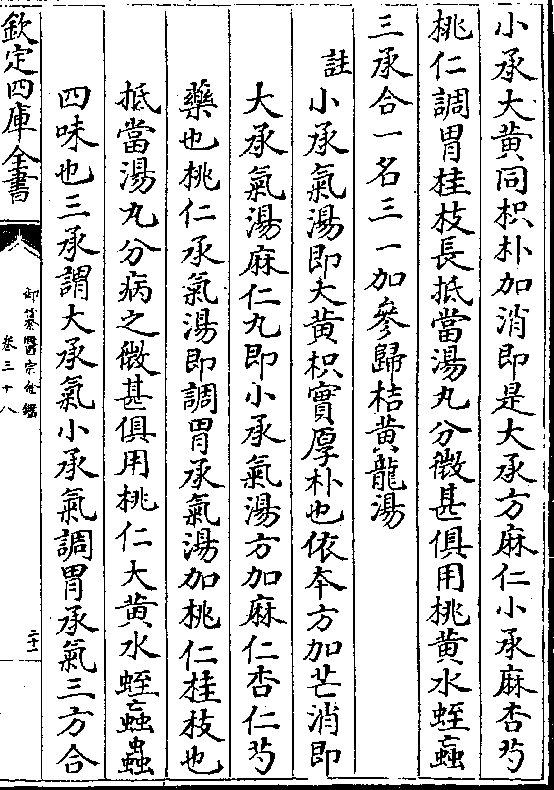 小承大黃同枳朴加消即是大承方麻仁小承麻杏芍
桃仁調胃桂枝長抵當湯丸分微甚俱用桃黃水蛭䖟
三承合一名三一加參歸桔黃龍湯
註小承氣湯即大黃枳實厚朴也依本方加芒消即
大承氣湯麻仁丸即小承氣湯方加麻仁杏仁芍
藥也桃仁承氣湯即調胃承氣湯加桃仁桂枝也
抵當湯丸分病之微甚俱用桃仁大黃水蛭䖟蟲
四味也三承謂大承氣小承氣調胃承氣三方合
欽定四庫全書
御纂醫宗金鑑
卷三十八
二十一